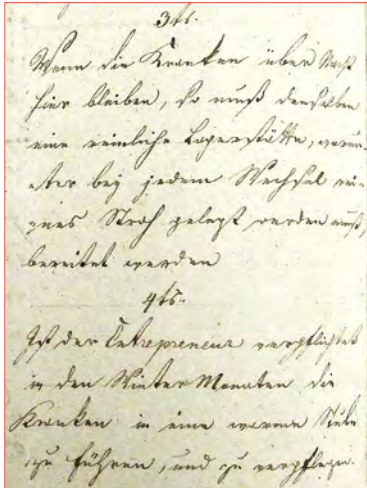 3tes.
Wenn die Kranken über Nacht
hier bleiben, so muß denselben
eine reinliche Lagerstätte, worun-
ter bey jedem Wechsel rei-
nes Stroh gelegt werden muß,
bereitet werden
4tes.
Ist der Entrepreneur verpflichtet
in den Winter Monaten die
Kranken in eine warme Stube
zu führen, und zu verpflegen.